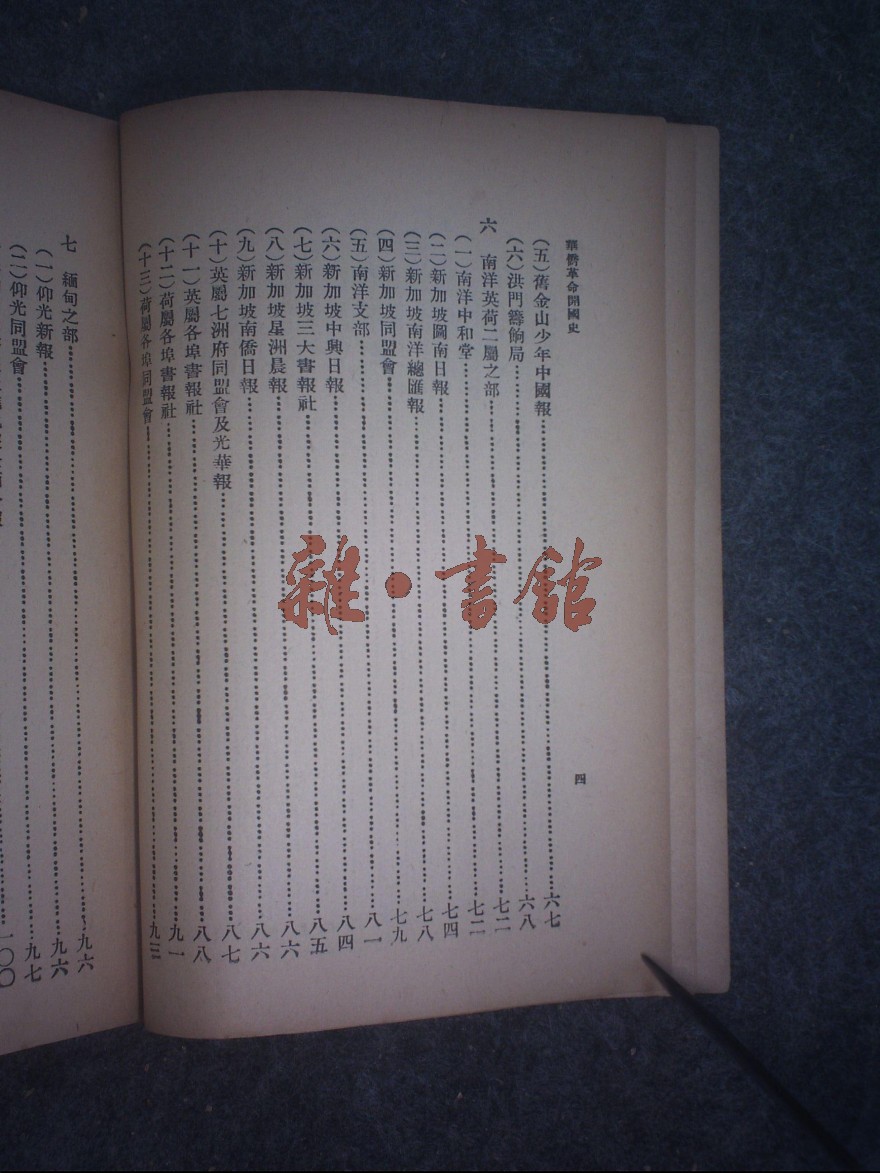 華僑革命開國史
(五)舊金山少年中國報……六七
(六)洪門籌餉局……六八
六 南洋英荷二屬之部……七二
(一)南洋中和堂……七二
(二)新加坡圖南日報……七四
(三)新加坡南洋總匯報……七八
(四)新加坡同盟會……七九
(五)南洋支部……八一
(六)新加坡中興日報……八四
(七)新加坡三大書報社……八五
(八)新加坡星洲晨報……八六
(九)新加坡南僑日報……八六
(十)英屬七洲府同盟會及光華報……八七
(十一)英屬各埠書報社……八八
(十二)荷屬各埠書報社……九一
(十三)荷屬各埠同盟會……九三
四
七 緬甸之部……九六
(一)仰光新報……九六
(二)仰光同盟會……九七
一〇〇
雜·書館